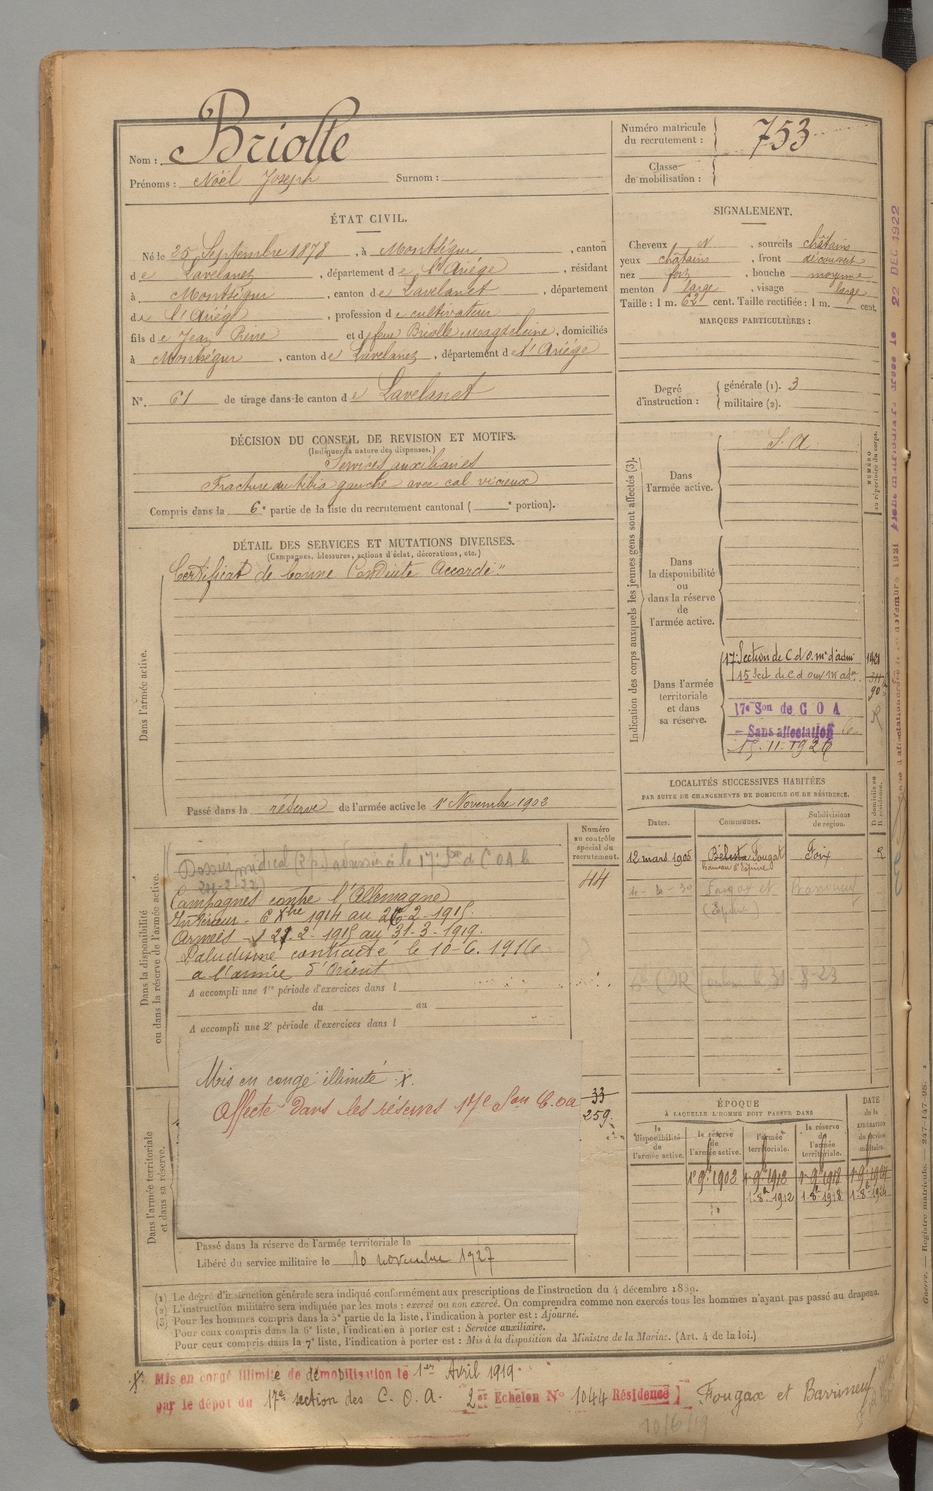 Nom : Briolle
Prénoms : Noël Joseph Surnom :
Numéro matricule du recrutement : 753
Classe de mobilisation :
ÉTAT CIVIL.
Né le 25 Septembre 1878, à Montségur, canton
de Lavelanet, département de l'Ariége, résidant
à Montségur, canton de Lavelanet, département
de l'Ariége, profession de cultivateur
fils de Jean Pierre et de feue Briolle Magdeleine, domiciliés
à Montségur, canton de Lavelanet, département de l'Ariége
N° 61 de tirage dans le canton de Lavelanet
SIGNALEMENT.
Cheveux N, sourcils châtains
yeux châtains, front découvert
nez fort, bouche moyenne
menton large, visage large
Taille : 1 m. 62 cent. Taille rectifiée : 1 m. cent.
MARQUES PARTICULIÈRES :
Degré d'instruction : générale (1). 3
militaire (2).
DÉCISION DU CONSEIL DE REVISION ET MOTIFS.
(Indiquer la nature des dispenses.)
Services auxiliaires
Fracture du tibia gauche avec cal vicieux
Compris dans la 6e partie de la liste du recrutement cantonal ( e portion).
DÉTAIL DES SERVICES ET MUTATIONS DIVERSES.
(Campagnes, blessures, actions d'éclat, décorations, etc.)
Dans l'armée active.
Certificat de bonne Conduite Accordé"
Passé dans la réserve de l'armée active le 1er Novembre 1902
Indication des corps auxquels les jeunes gens sont affectés (3).
Dans l'armée active.
S. A
Dans la disponibilité ou dans la réserve de l'armée active.
Dans l'armée territoriale et dans sa réserve.
17e Section de C d O. m d'adm
15 Sect. de C d ouv m adm
17e Son de C O A
Sans affectation
15.11.1926
LOCALITÉS SUCCESSIVES HABITÉES
PAR SUITE DE CHANGEMENTS DE DOMICILE OU DE RÉSIDENCE.
Dates. Communes. Subdivisions de région.
12 mars 1905 Bélesta Fougax Foix R
Numéro au contrôle spécial du recrutement.
44
Dans la disponibilité ou dans la réserve de l'armée active.
Campagnes contre l'Allemagne
Intérieur - 6 Xbre 1914 au 26-2-1915.
Armées - 27-2-1915 au 31-3-1919.
Paludisme contracté le 10-6-1916
a l'armée d'Orient
A accompli une 1re période d'exercices dans l
du au
A accompli une 2e période d'exercices dans l
Mis en congé illimité X.
Affecté dans les réserves 17e Son C.O.A
33
259
Dans l'armée territoriale et dans sa réserve.
Passé dans la réserve de l'armée territoriale le
Libéré du service militaire le 10 novembre 1927
ÉPOQUE
À LAQUELLE L'HOMME DOIT PASSER DANS
la disponibilité de l'armée active. la réserve de l'armée active. l'armée territoriale. la réserve de l'armée territoriale.
DATE de la LIBÉRATION du service militaire.
(1) Le degré d'instruction générale sera indiqué conformément aux prescriptions de l'instruction du 4 décembre 1889.
(2) L'instruction militaire sera indiquée par les mots : exercé ou non exercé. On comprendra comme non exercés tous les hommes n'ayant pas passé au drapeau.
(3) Pour les hommes compris dans la 5e partie de la liste, l'indication à porter est : Ajourné.
Pour ceux compris dans la 6e liste, l'indication à porter est : Service auxiliaire.
Pour ceux compris dans la 7e liste, l'indication à porter est : Mis à la disposition du Ministre de la Marine. (Art. 4 de la loi.)
X Mis en congé illimité de démobilisation le 1er Avril 1919
par le dépôt du 17e section des C. O. A. 2er Echelon N° 1044 Résidence Fougax et Barrineuf
10/6/19